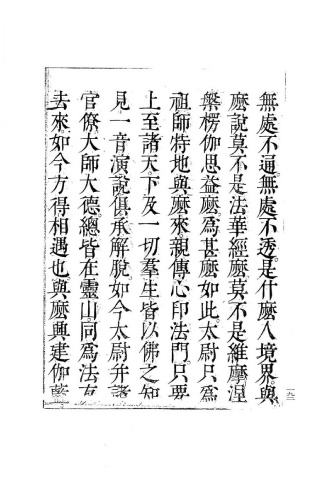 無處不通無處不透。是什麼人境界。與
麼說莫不是法華經麼。莫不是維摩涅
槃楞伽思益麼。爲甚麼如此。太尉只爲
祖師特地與麼來。親傳心印法門。只要
上至諸天。下及一切羣生皆以佛之知
見一音演說俱承解脫。如今太尉幷諸
官僚大師大德。總皆在靈山。同爲法友
去來。如今方得相遇也。與麼興建伽藍